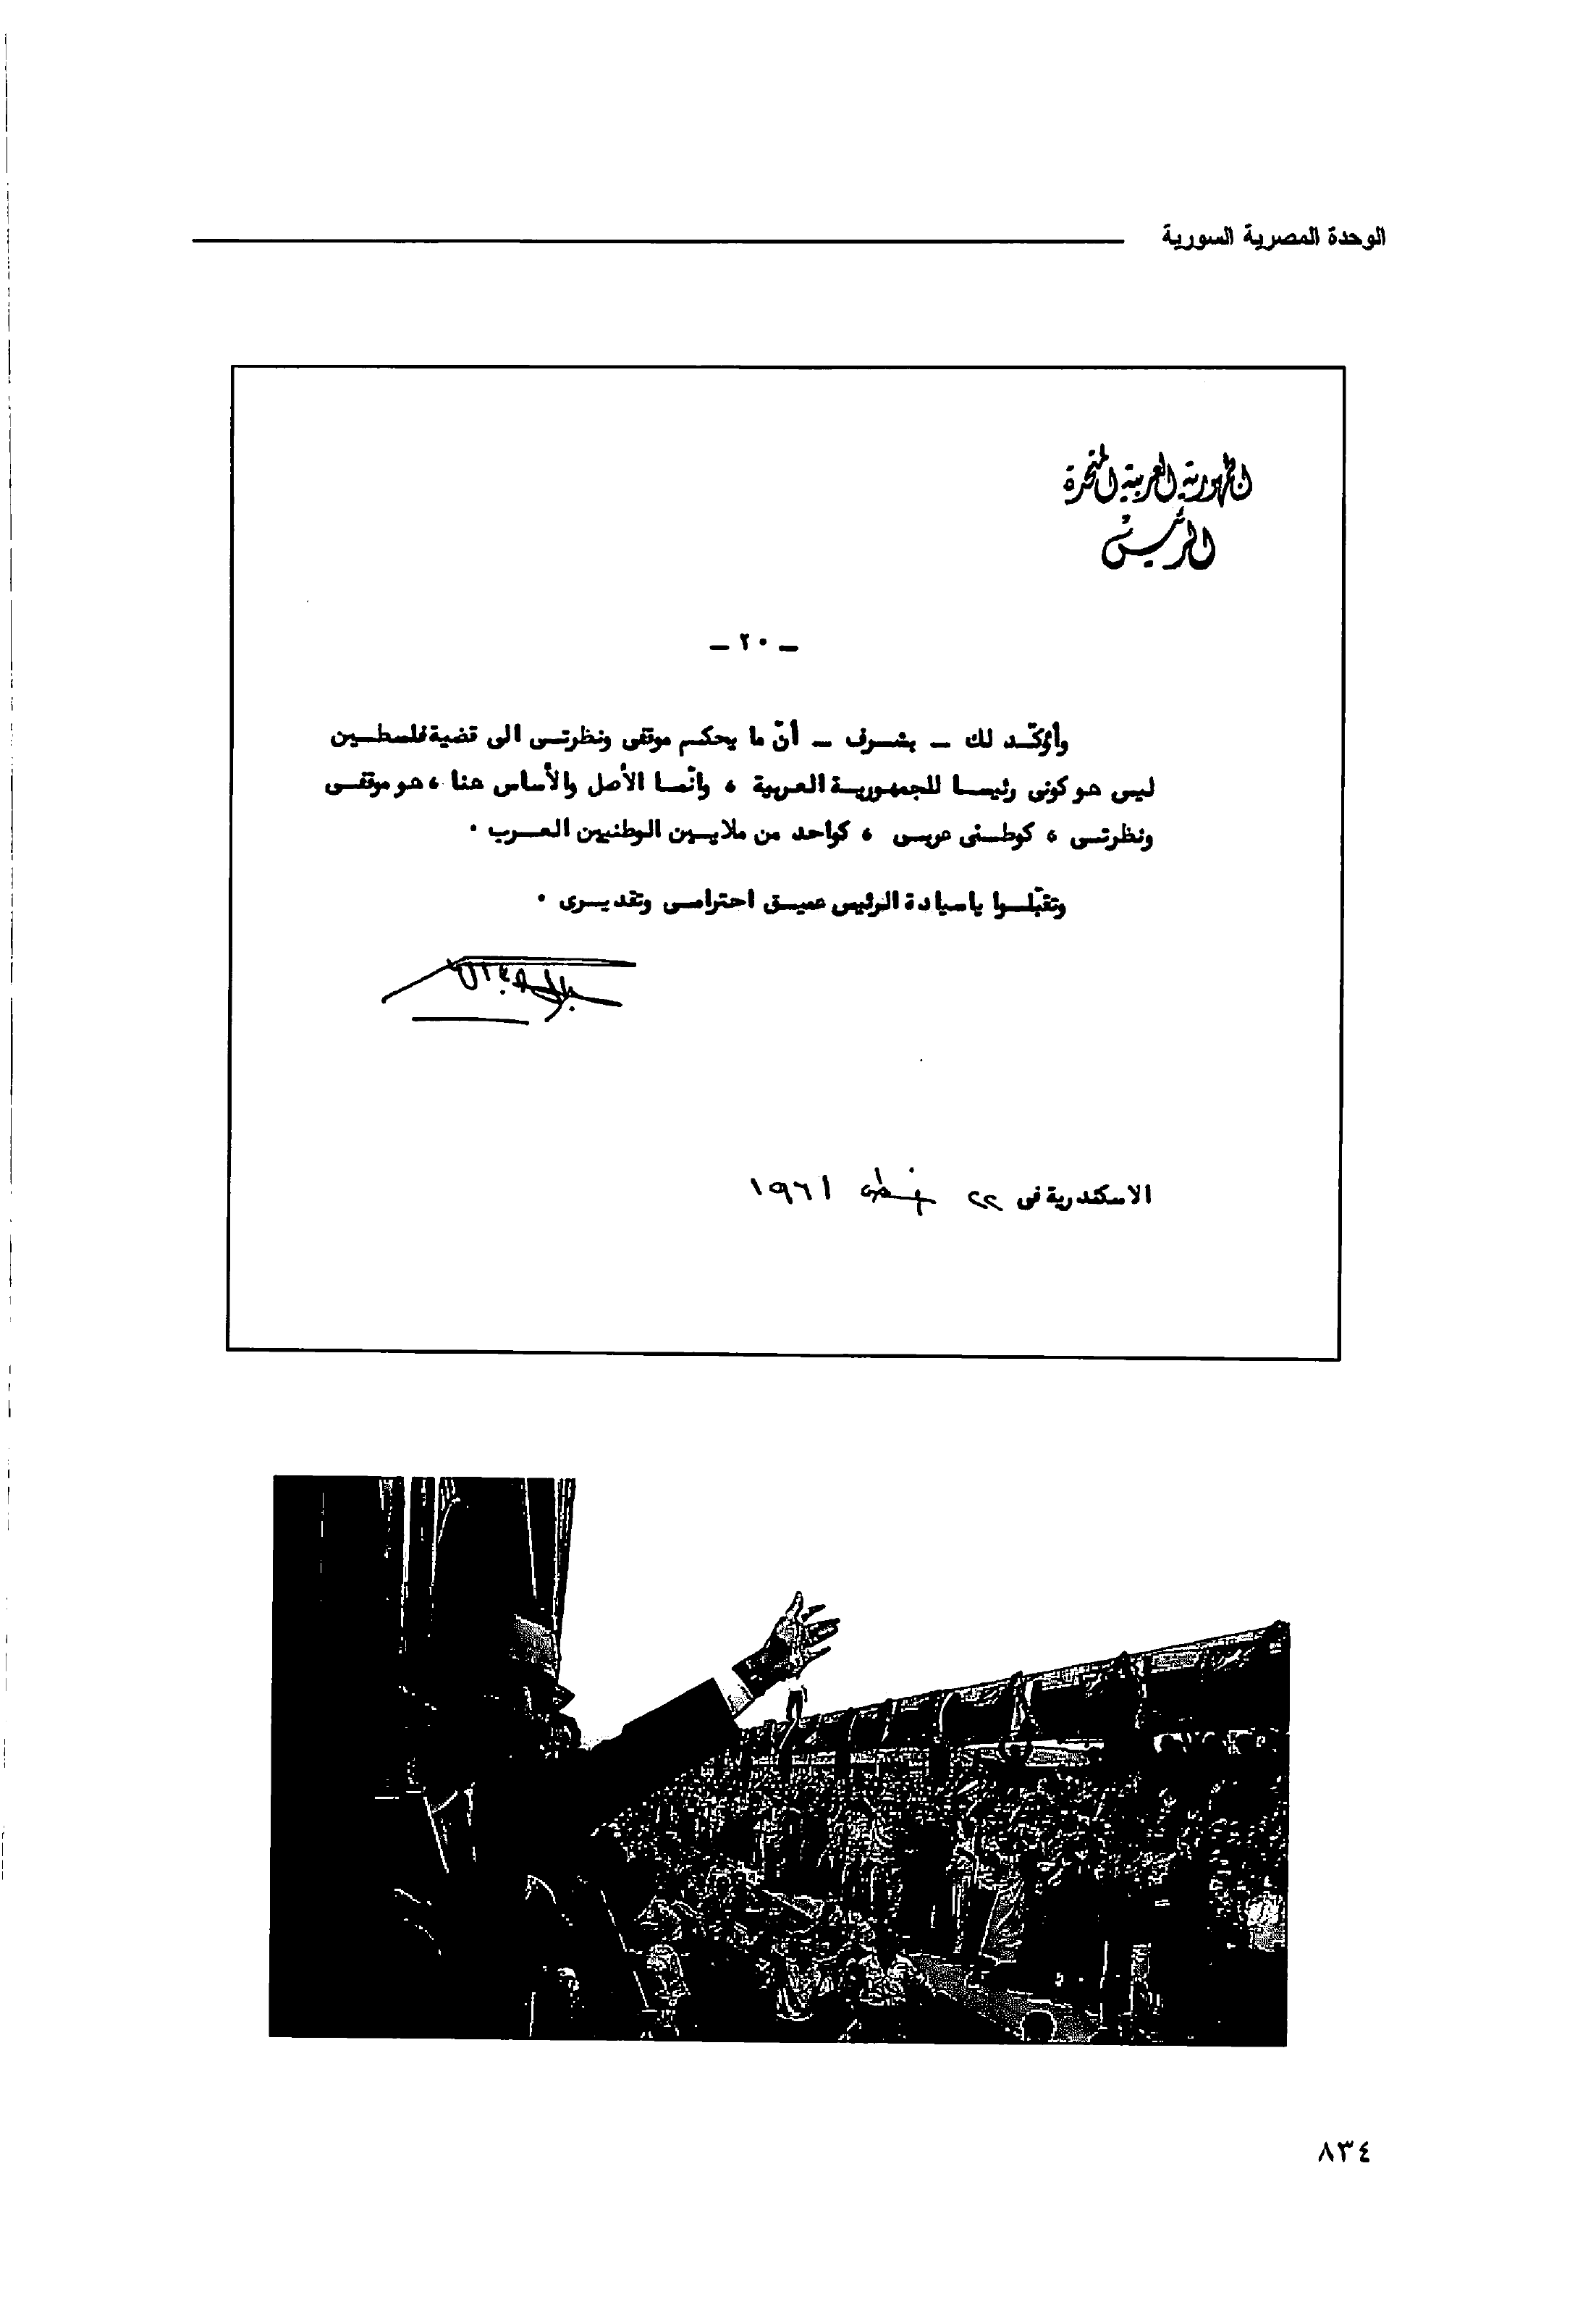 الوحدة المصرية السورية
الجمهورية العربية المتحدة
الرئيس
ـ ٢٠ ـ
وأؤكّد لك ـ بشرف ـ أنّ ما يحكم موقفى ونظرتى الى قضية فلسطين
ليس هو كونى رئيسا للجمهورية العربية ، وانّما الأصل والأساس هنا ، هو موقفى
ونظرتى ، كوطنى عربى ، كواحد من ملايين الوطنيين العرب .
وتقبّلوا ياسيادة الرئيس عميق احترامى وتقديرى .
الاسكندرية فى ٢٢ ١٩٦١
٨٣٤